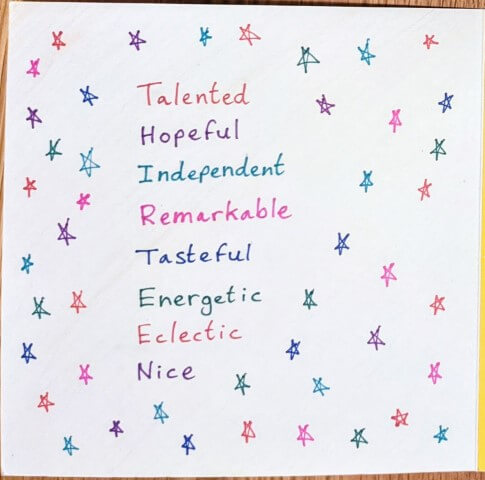 Talented
Hopeful
Independent
Remarkable
Tasteful
Energetic
Eclectic
Nice